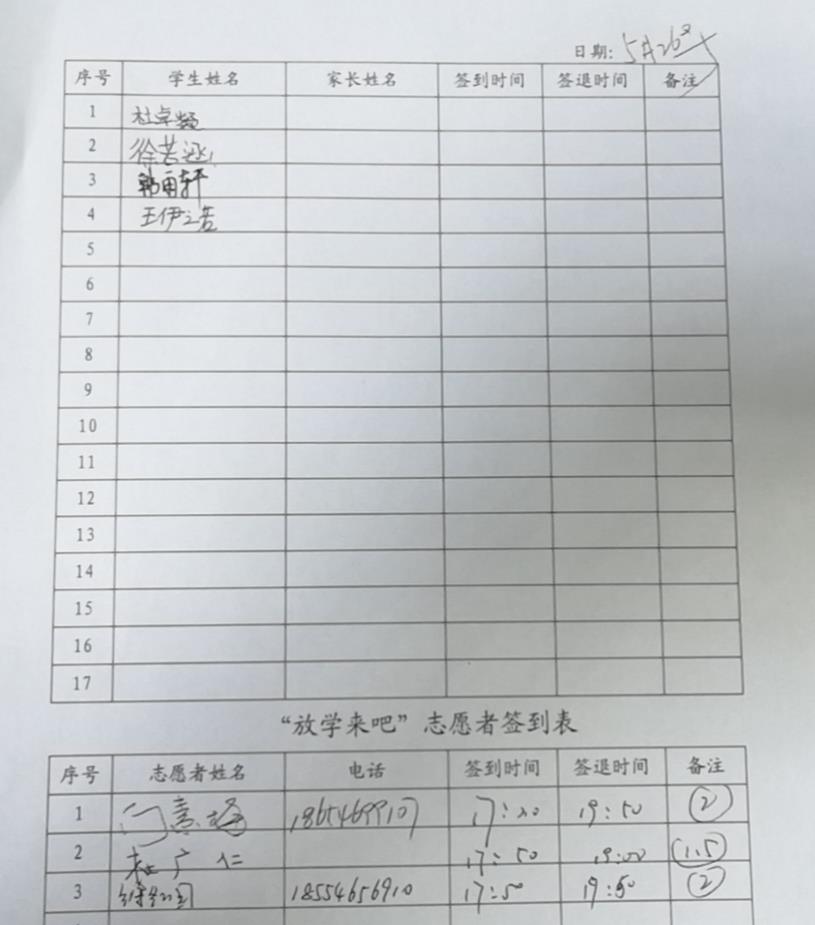 日期: 5月26日
序号 学生姓名 家长姓名 签到时间 签退时间 备注
1 杜卓
2 徐若涵
3 韩雨轩
4 王伊之若
5
6
7
8
9
10
11
12
13
14
15
16
17
“放学来吧”志愿者签到表
序号 志愿者姓名 电话 签到时间 签退时间 备注
1 门 18654699107 17:20 19:50 2
2 杜广仁 17:50 19:00 1.5
3 18554656910 17:50 19:50 2